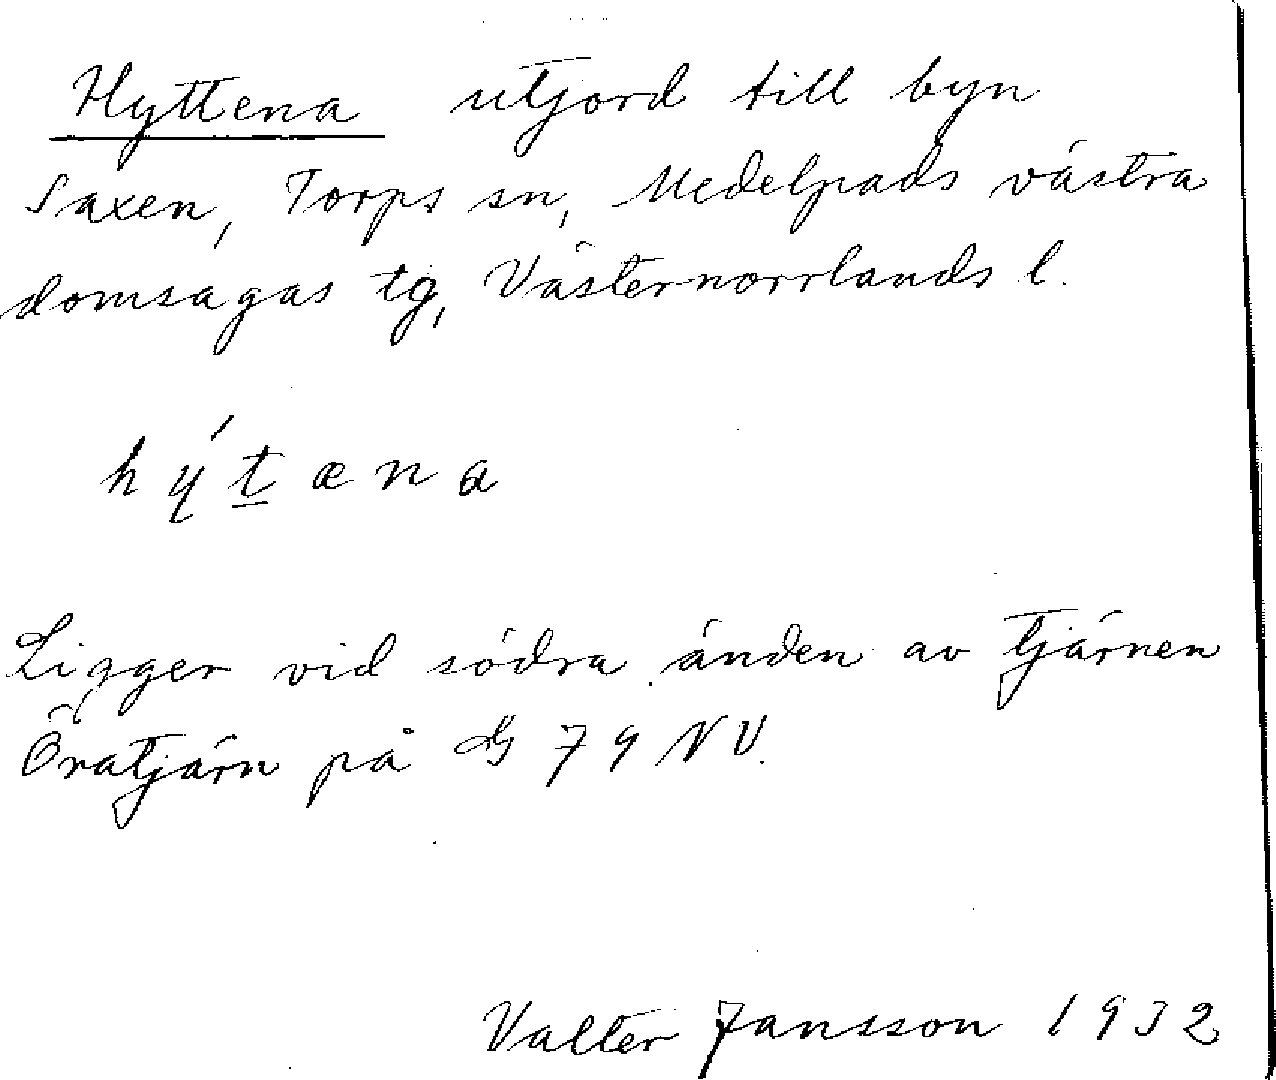 Hyttena utjord till byn
Saxen, Torps sn, Medelpads västra
domsagas tg, Västernorrlands l.
hýt̲æna
Ligger vid södra änden av tjärnen
Öratjärn på G 79 NV.
Valter Jansson 1932